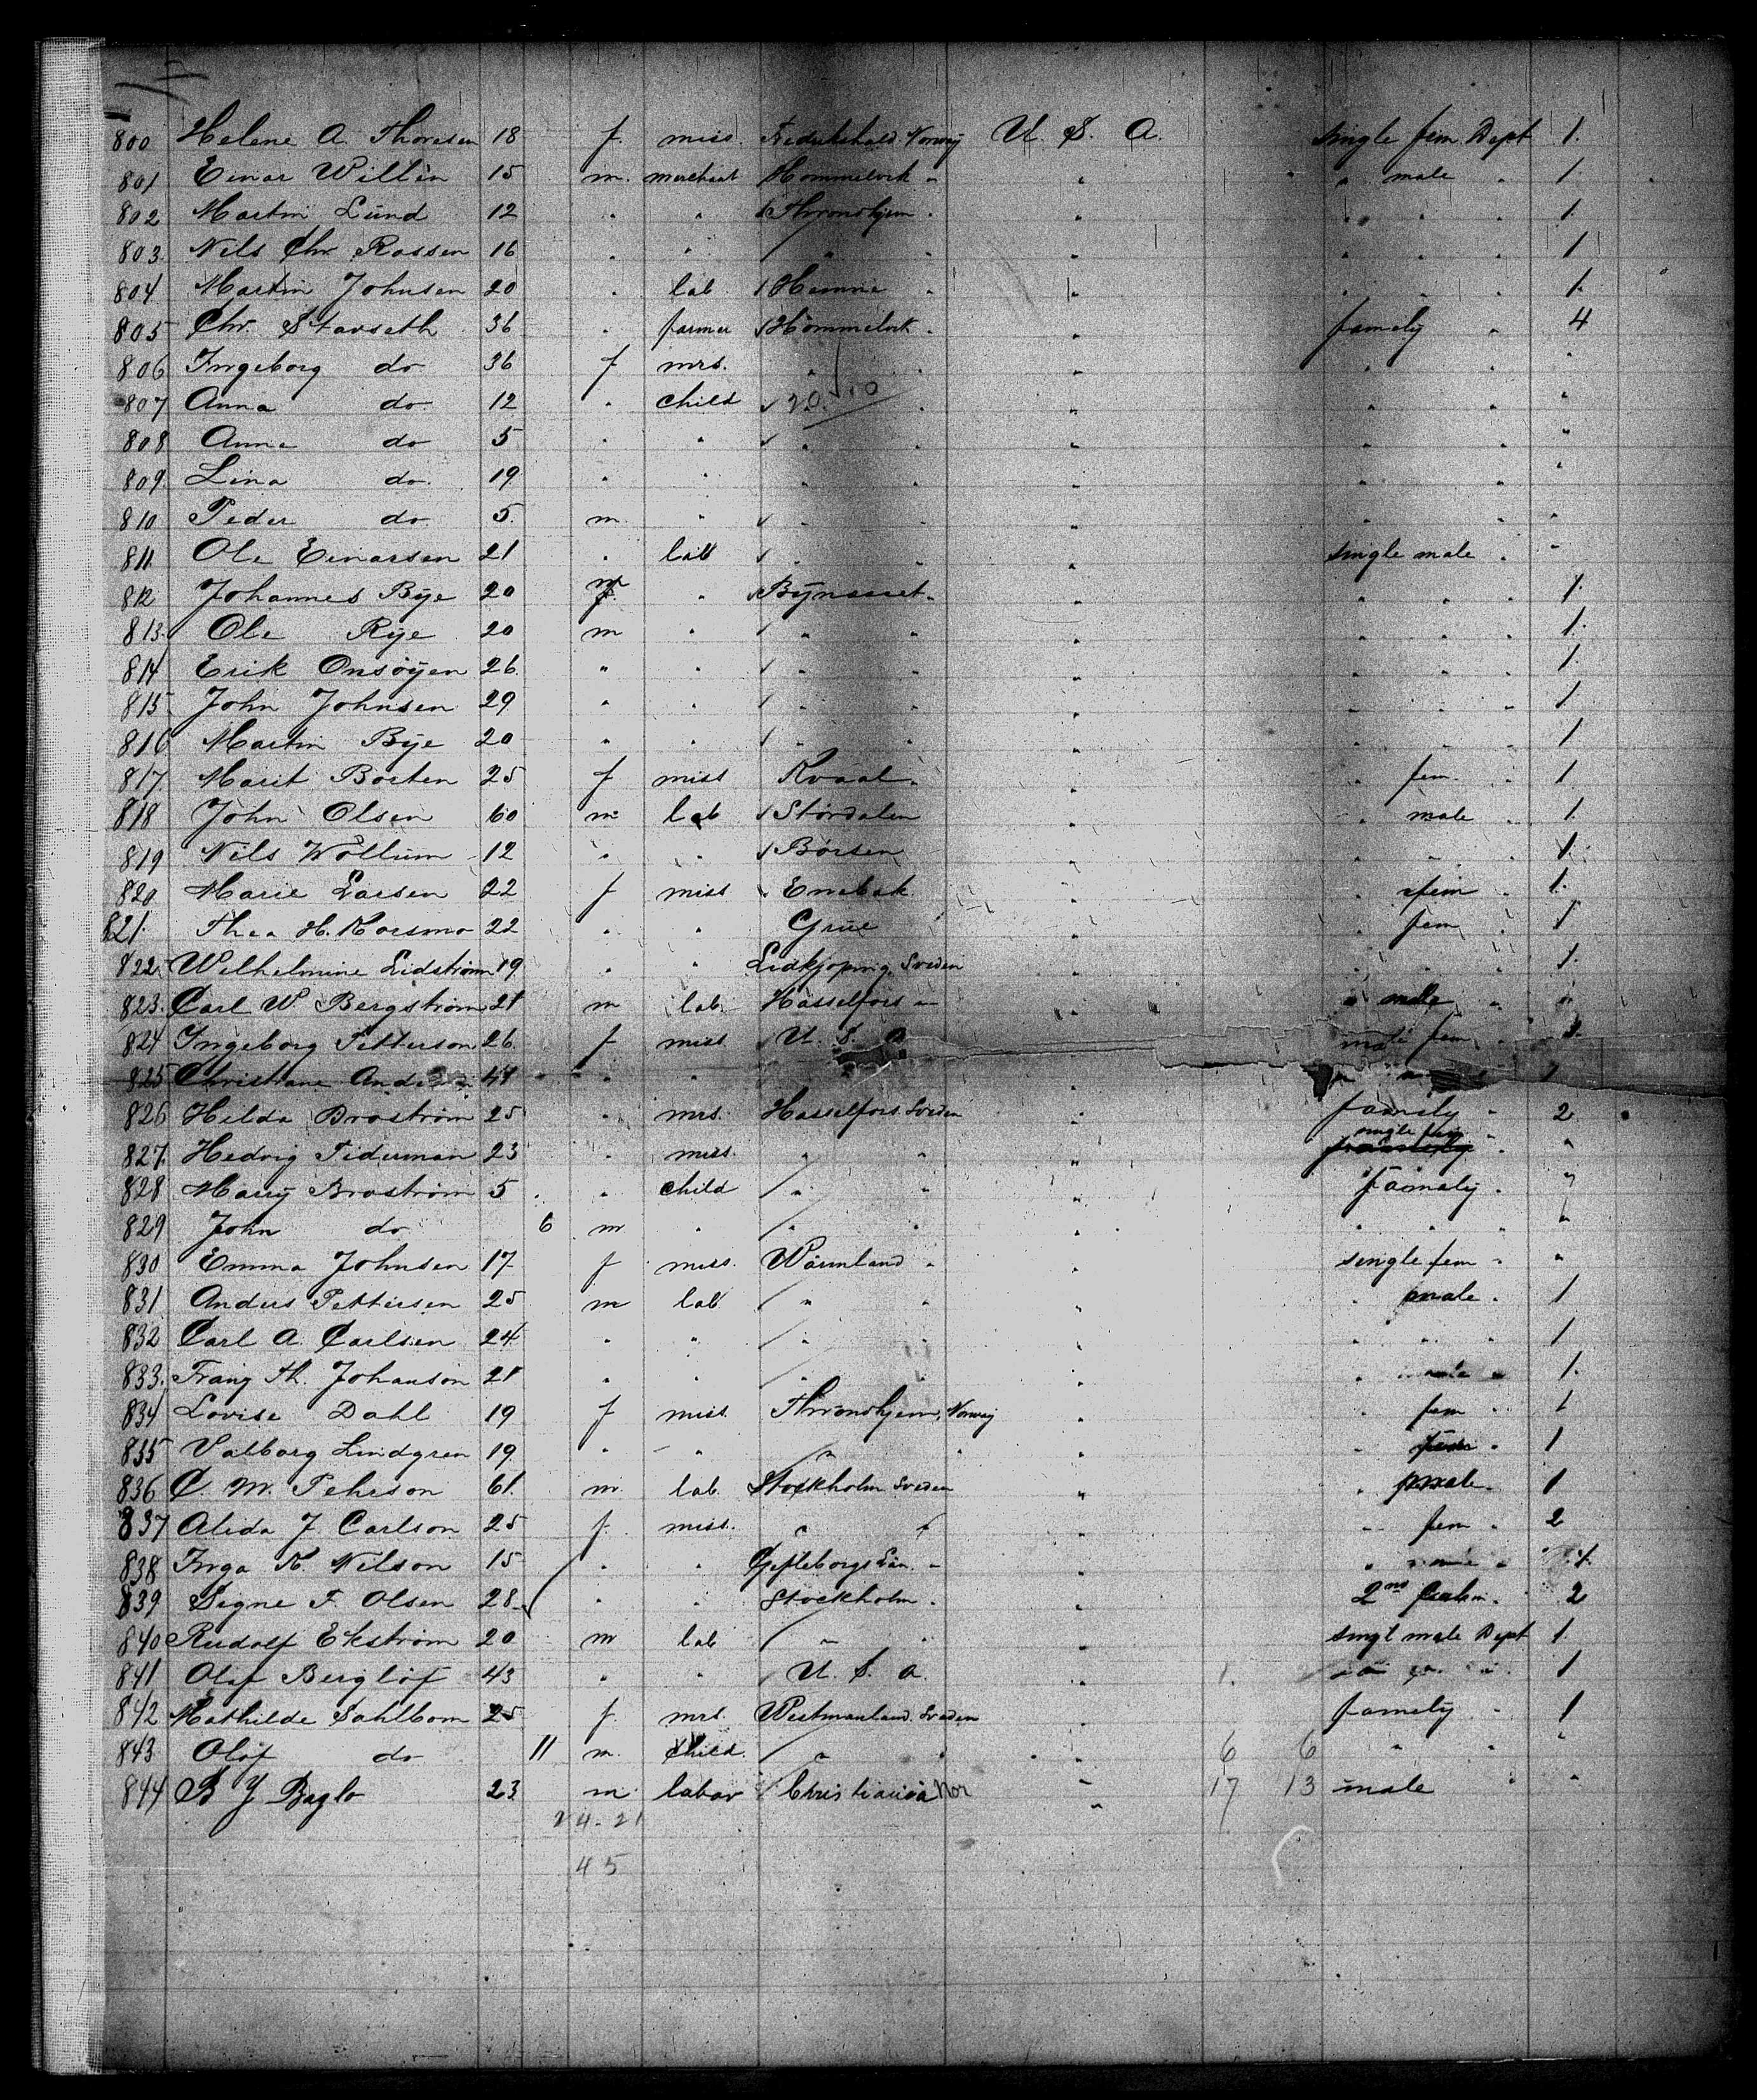 800 Helene A. Thoresen 18 f. miss. Fredrikshald. Norway U. S. A. Single fem. Dept 1.
801 Einar Willèn 15 m. merchant Hommelvik " " " male " 1
802 Martin Lund 12 " " Throndhjem " " " " " 1.
803. Nils Chr. Rossen 16 " " " " " " " " 1
804 Martin Johnsen 20 " lab Hemne " " " " " 1.
805 Chr. Stavseth 36 " farmer Hommelvik " " famely " 4
806 Ingeborg do 36 f mrs. " " " " " "
807 Anna do 12 " child 20 " " " " "
808 Anne do 5 " " " " " " " "
809. Lina do. 19 " " " " " " " "
810 Peder do 5. m " " " " " " "
811. Ole Einarsen 21 " lab " " " single male " "
812 Johannes Bye 20 m " Bynæsset " " " " " 1.
813. Ole Rye 20 m " " " " " " " 1.
814 Erik Onsöyen 26 " " " " " " " " 1.
815 John Johnsen 29 " " " " " " " " 1
816 Martin Bye 20 " " " " " " " " 1
817 Marit Borten 25 f miss Kvaal " " " fem. " 1
818 John Olsen 60 m lab Stördalen " " male " 1.
819 Nils Wollum 12 " " Börsen " " " " 1.
820 Marie Larsen 22 f miss Enebak " " fem " 1.
821. Thea H. Korsmo 22 " " Grue " " fem " 1
822. Wilhelmine Lidström 19 " " Lidkjoping. Sveden " " " " 1.
823. Carl W Bergström 21 m lab. Hasselfors " " " male " "
824 Ingeborg Petterson 26 f miss U. S. A " fem " 1.
825 Christiane 41 " " " " " "
826 Hilda Broström 25 " mrs. Hasselfors. Sveden " famely " 2
827. Hedvig Tiderman 23 " miss. " " " single fem " "
828 Harry Broström 5 " child " " " famely " "
829 John do 6 m " " " " " " "
830 Emma Johnsen 17 f miss. Wärmland " " single fem " "
831 Anders Pettersen 25 m lab " " " " male " 1
832 Carl A. Carlsen 24 " " " " " " " " 1
833. Franz Th. Johanson 21 " " " " " male " 1.
834 Lovise Dahl 19 f miss. Throndhjem, Norway " " fem " 1
835 Valborg Lindgren 19 " " " " " " fem " 1
836 C. M. Pehrson 61. m lab Stockholm Sveden " " male " 1
837 Alida J. Carlson 25 f. miss. " " " " fem " 2
838 Inga K. Nilson 15 " " Gefleborgs Län. " " " " 1.
839 Signe F. Olsen 28. " " Stockholm " " 2nd Cabin. 2
840 Rudolf Ekström 20 m lab " " " singl male Dept 1.
841 Olof Berglöf 43 " " U. S. A. " 1. 1
842 Mathilde Sahlbom 25 f. mrs. Westmanland. Sveden famely " 1
843 Olof do 11 m. child. " " " 6 6 " " "
844 B Y Baglo 23 m labor Christiania Nor " 17 13 male " "
24 - 21
45